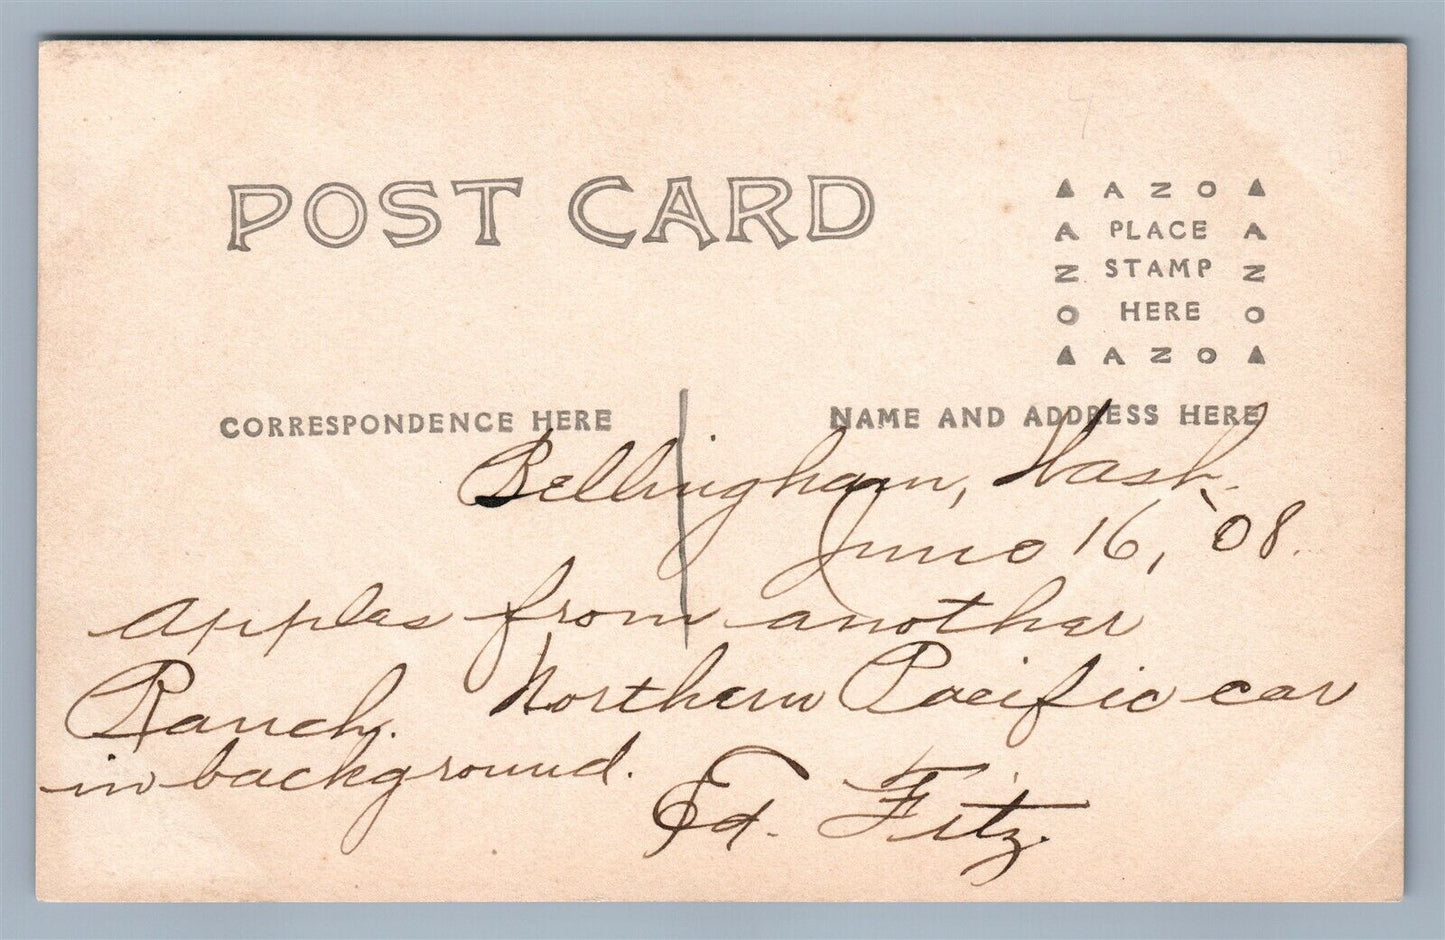 POST CARD
AZO
A PLACE A
N STAMP N
O HERE O
AZO
CORRESPONDENCE HERE
NAME AND ADDRESS HERE
Bellingham, Wash.
June 16, '08.
Apples from another
Ranch. Northern Pacific car
in background.
Ed. Fitz.